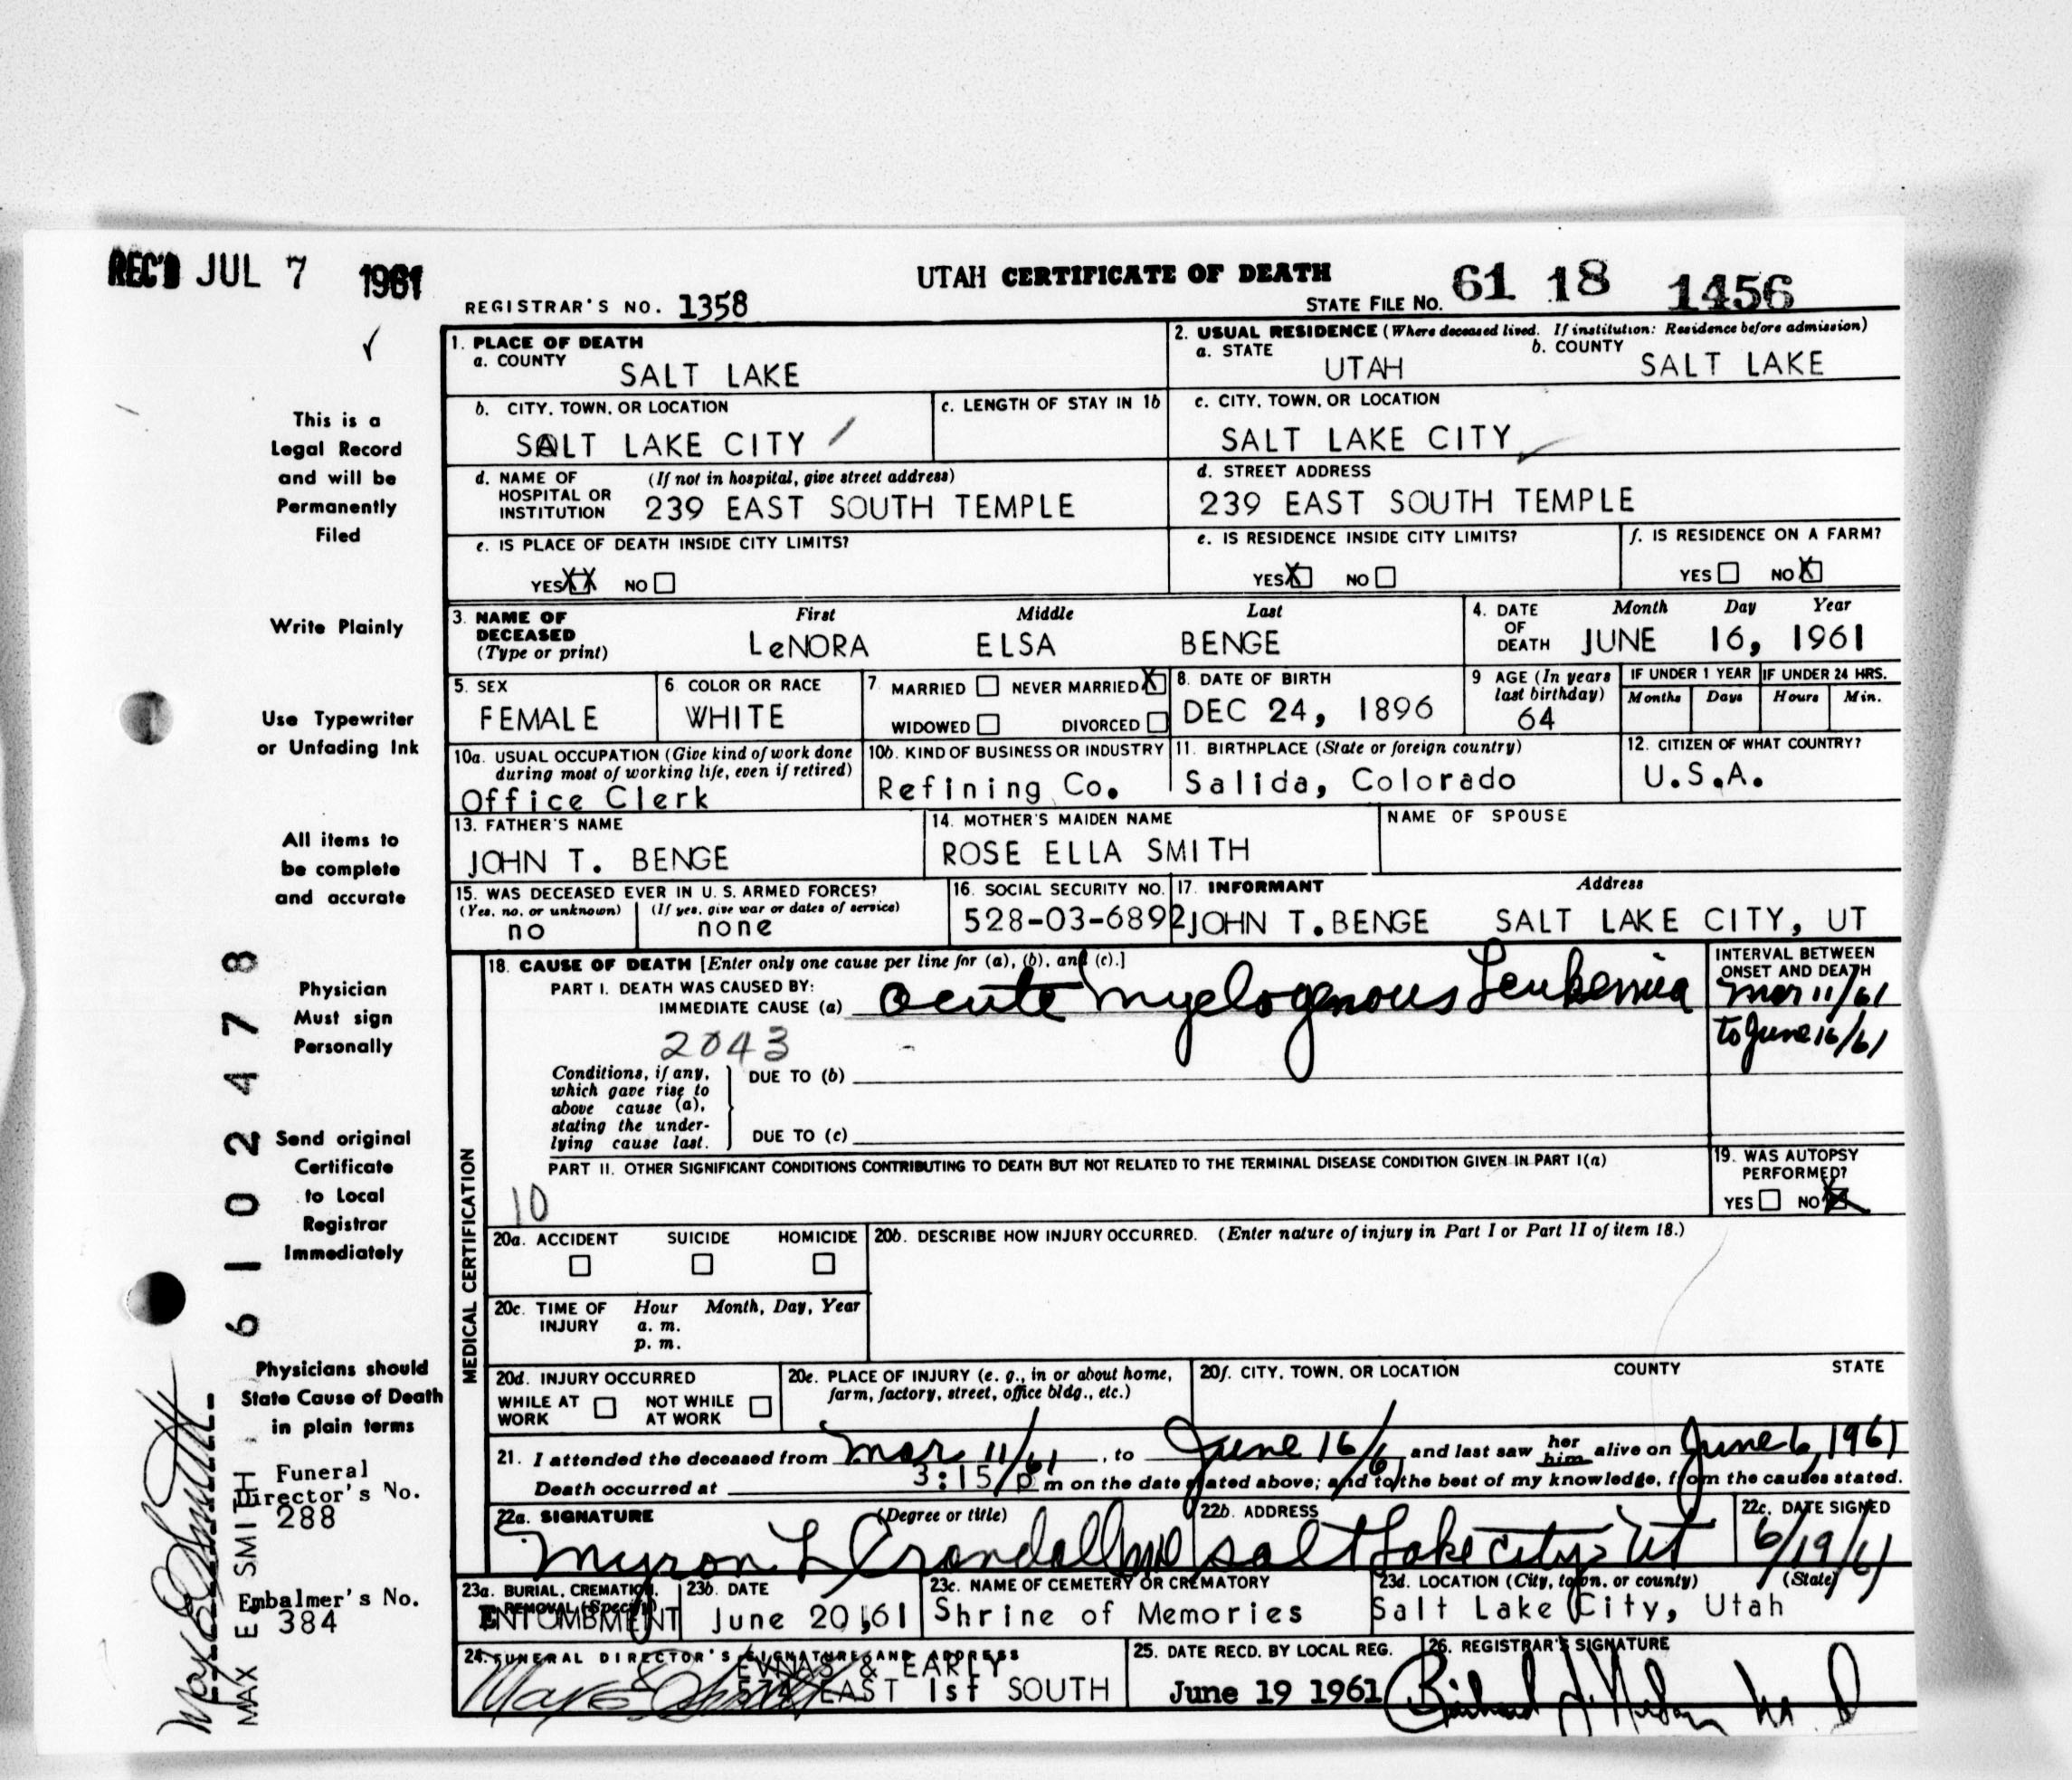 REC'D JUL 7 1961
UTAH CERTIFICATE OF DEATH
REGISTRAR'S NO. 1358
STATE FILE NO. 61 18 1456
This is a
Legal Record
and will be
Permanently
Filed
Write Plainly
Use Typewriter
or Unfading Ink
All items to
be complete
and accurate
Physician
Must sign
Personally
Send original
Certificate
to Local
Registrar
Immediately
Physicians should
State Cause of Death
in plain terms
Funeral
Director's No.
288
Embalmer's No.
384
6102478
MAX E. SMITH
Max E Smith
1. PLACE OF DEATH
a. COUNTY
SALT LAKE
2. USUAL RESIDENCE (Where deceased lived. If institution: Residence before admission)
a. STATE UTAH b. COUNTY SALT LAKE
b. CITY, TOWN, OR LOCATION
SALT LAKE CITY
c. LENGTH OF STAY IN 1b
c. CITY, TOWN, OR LOCATION
SALT LAKE CITY
d. NAME OF HOSPITAL OR INSTITUTION (If not in hospital, give street address)
239 EAST SOUTH TEMPLE
d. STREET ADDRESS
239 EAST SOUTH TEMPLE
e. IS PLACE OF DEATH INSIDE CITY LIMITS?
YES XX NO
e. IS RESIDENCE INSIDE CITY LIMITS?
YES X NO
f. IS RESIDENCE ON A FARM?
YES NO X
3. NAME OF DECEASED (Type or print)
First Middle Last
LeNORA ELSA BENGE
4. DATE OF DEATH Month Day Year
JUNE 16, 1961
5. SEX
FEMALE
6. COLOR OR RACE
WHITE
7. MARRIED NEVER MARRIED X
WIDOWED DIVORCED
8. DATE OF BIRTH
DEC 24, 1896
9 AGE (In years last birthday)
64
IF UNDER 1 YEAR IF UNDER 24 HRS.
Months Days Hours Min.
10a. USUAL OCCUPATION (Give kind of work done during most of working life, even if retired)
Office Clerk
10b. KIND OF BUSINESS OR INDUSTRY
Refining Co.
11. BIRTHPLACE (State or foreign country)
Salida, Colorado
12. CITIZEN OF WHAT COUNTRY?
U.S.A.
13. FATHER'S NAME
JOHN T. BENGE
14. MOTHER'S MAIDEN NAME
ROSE ELLA SMITH
NAME OF SPOUSE
15. WAS DECEASED EVER IN U. S. ARMED FORCES?
(Yes, no, or unknown) (If yes, give war or dates of service)
no none
16. SOCIAL SECURITY NO.
528-03-6892
17. INFORMANT Address
JOHN T. BENGE SALT LAKE CITY, UT
MEDICAL CERTIFICATION
18. CAUSE OF DEATH [Enter only one cause per line for (a), (b), and (c).]
PART I. DEATH WAS CAUSED BY:
IMMEDIATE CAUSE (a) acute myelogenous Leukemia
INTERVAL BETWEEN ONSET AND DEATH
Mar 11/61
to June 16/61
2043
Conditions, if any, which gave rise to above cause (a), stating the underlying cause last.
DUE TO (b)
DUE TO (c)
PART II. OTHER SIGNIFICANT CONDITIONS CONTRIBUTING TO DEATH BUT NOT RELATED TO THE TERMINAL DISEASE CONDITION GIVEN IN PART I(a)
10
19. WAS AUTOPSY PERFORMED?
YES NO X
20a. ACCIDENT SUICIDE HOMICIDE
20b. DESCRIBE HOW INJURY OCCURRED. (Enter nature of injury in Part I or Part II of item 18.)
20c. TIME OF INJURY Hour Month, Day, Year
a. m.
p. m.
20d. INJURY OCCURRED
WHILE AT WORK NOT WHILE AT WORK
20e. PLACE OF INJURY (e. g., in or about home, farm, factory, street, office bldg., etc.)
20f. CITY, TOWN, OR LOCATION COUNTY STATE
21. I attended the deceased from Mar 11/61, to June 16/61 and last saw her him alive on June 6, 1961
Death occurred at 3:15 p m on the date stated above; and to the best of my knowledge, from the causes stated.
22a. SIGNATURE (Degree or title)
Myron L Crandall MD
22b. ADDRESS
Salt Lake City, Ut
22c. DATE SIGNED
6/19/61
23a. BURIAL, CREMATION, REMOVAL (Specify)
ENTOMBMENT
23b. DATE
June 20, 61
23c. NAME OF CEMETERY OR CREMATORY
Shrine of Memories
23d. LOCATION (City, town, or county) (State)
Salt Lake City, Utah
24. FUNERAL DIRECTOR'S SIGNATURE AND ADDRESS
EVNAS & EARLY
EAST 1st SOUTH
Max E Smith
25. DATE RECD. BY LOCAL REG.
June 19 1961
26. REGISTRAR'S SIGNATURE